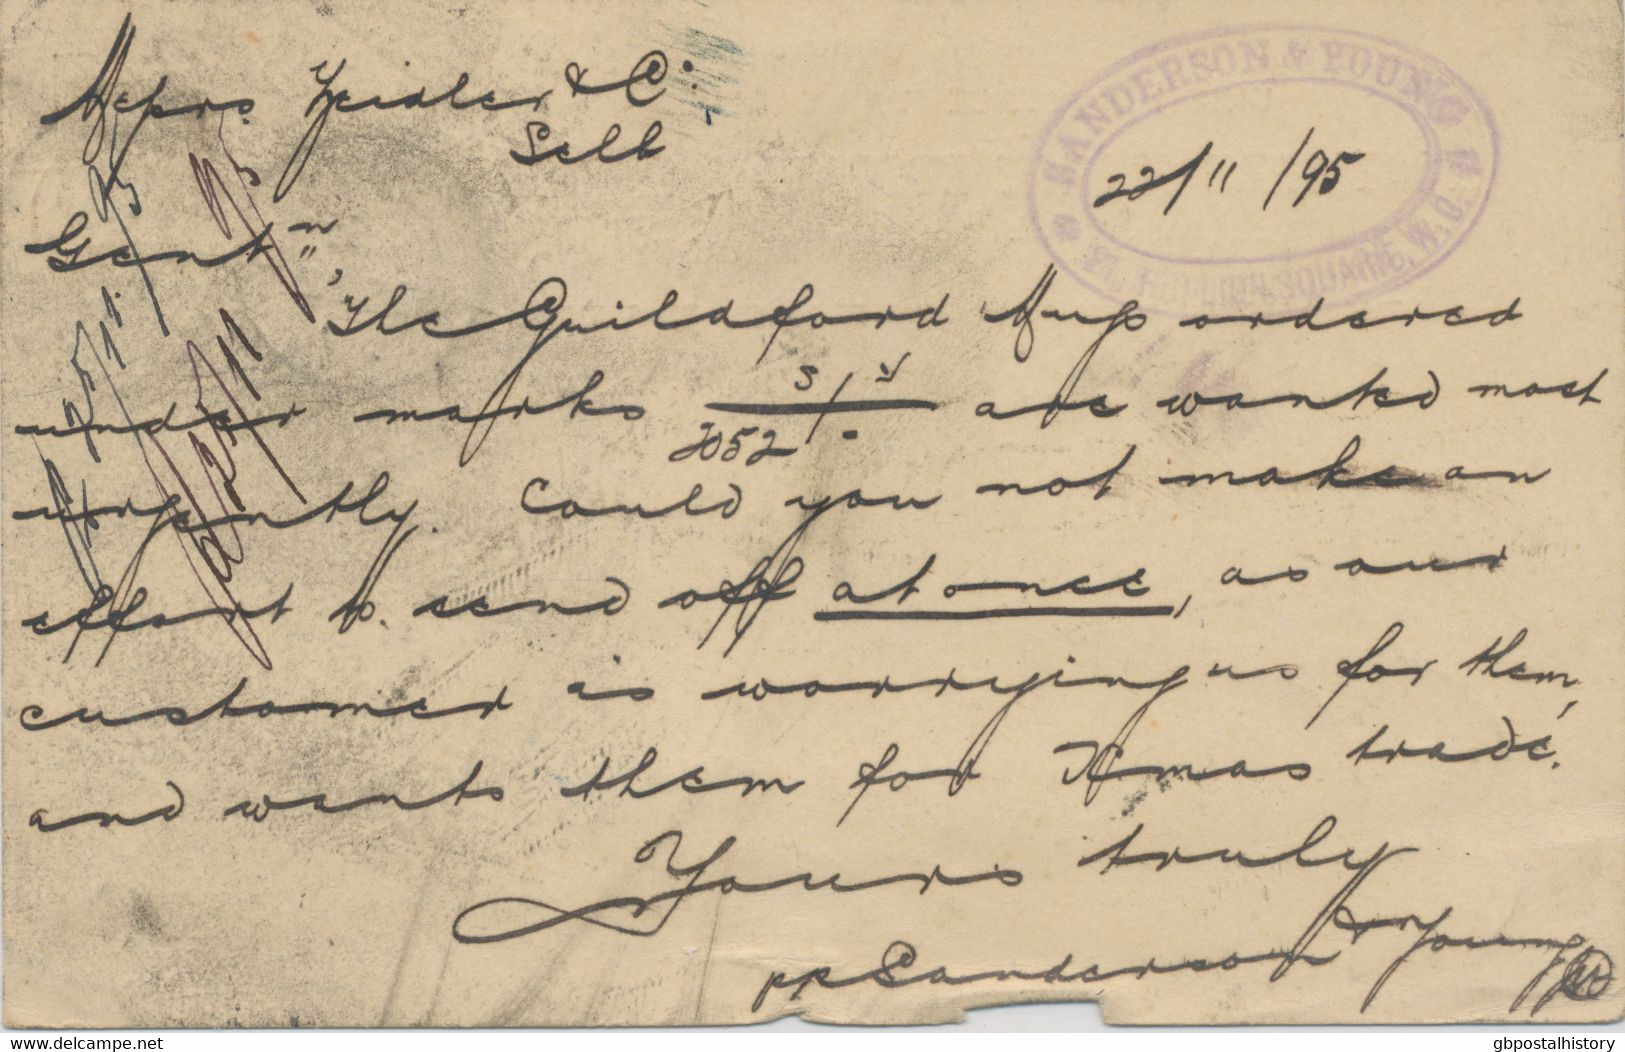 Messrs. Zeidler & Co:
Selb
SANDERSON & YOUNG
SQUARE, W.C.
22/11/95
Gentn,
The Guildford Mugs ordered
under marks S/Y
2052
are wanted most
urgently. Could you not make an
effort to send off at once, as our
customer is worrying us for them,
and wants them for Xmas trade.
Yours truly
pp Sanderson & Young
25/11. 95
25/11 95
www.delcampe.net
gbpostalhistory